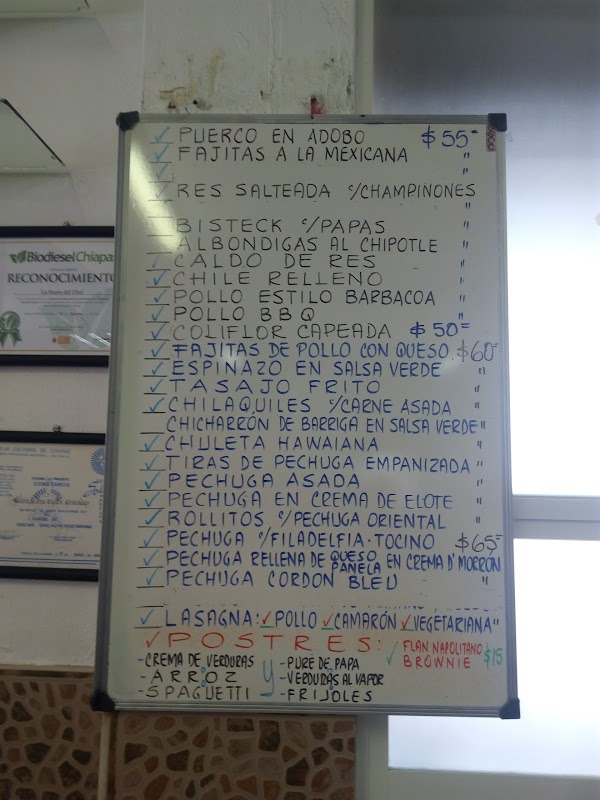 ✓ PUERCO EN ADOBO $55=
✓ FAJITAS A LA MEXICANA "
RES SALTEADA c/CHAMPIÑONES "
BISTECK c/PAPAS "
ALBONDIGAS AL CHIPOTLE "
CALDO DE RES "
✓ CHILE RELLENO "
✓ POLLO ESTILO BARBACOA "
✓ POLLO BBQ "
✓ COLIFLOR CAPEADA $50=
✓ FAJITAS DE POLLO CON QUESO $60=
✓ ESPINAZO EN SALSA VERDE "
✓ TASAJO FRITO "
✓ CHILAQUILES c/CARNE ASADA "
CHICHARRÓN DE BARRIGA EN SALSA VERDE "
✓ CHULETA HAWAIANA "
✓ TIRAS DE PECHUGA EMPANIZADA "
✓ PECHUGA ASADA "
✓ PECHUGA EN CREMA DE ELOTE "
✓ ROLLITOS c/PECHUGA ORIENTAL "
✓ PECHUGA c/FILADELFIA-TOCINO $65=
✓ PECHUGA RELLENA DE QUESO PANELA EN CREMA D'MORRÓN
✓ PECHUGA CORDON BLEU "
✓ LASAGNA: ✓ POLLO ✓ CAMARÓN ✓ VEGETARIANA "
✓ POSTRES: ✓ FLAN NAPOLITANO
BROWNIE $15
- CREMA DE VERDURAS
- ARROZ
- SPAGUETTI
y
- PURE DE PAPA
- VERDURAS AL VAPOR
- FRIJOLES
BiodieselChiapas
RECONOCIMIENTO